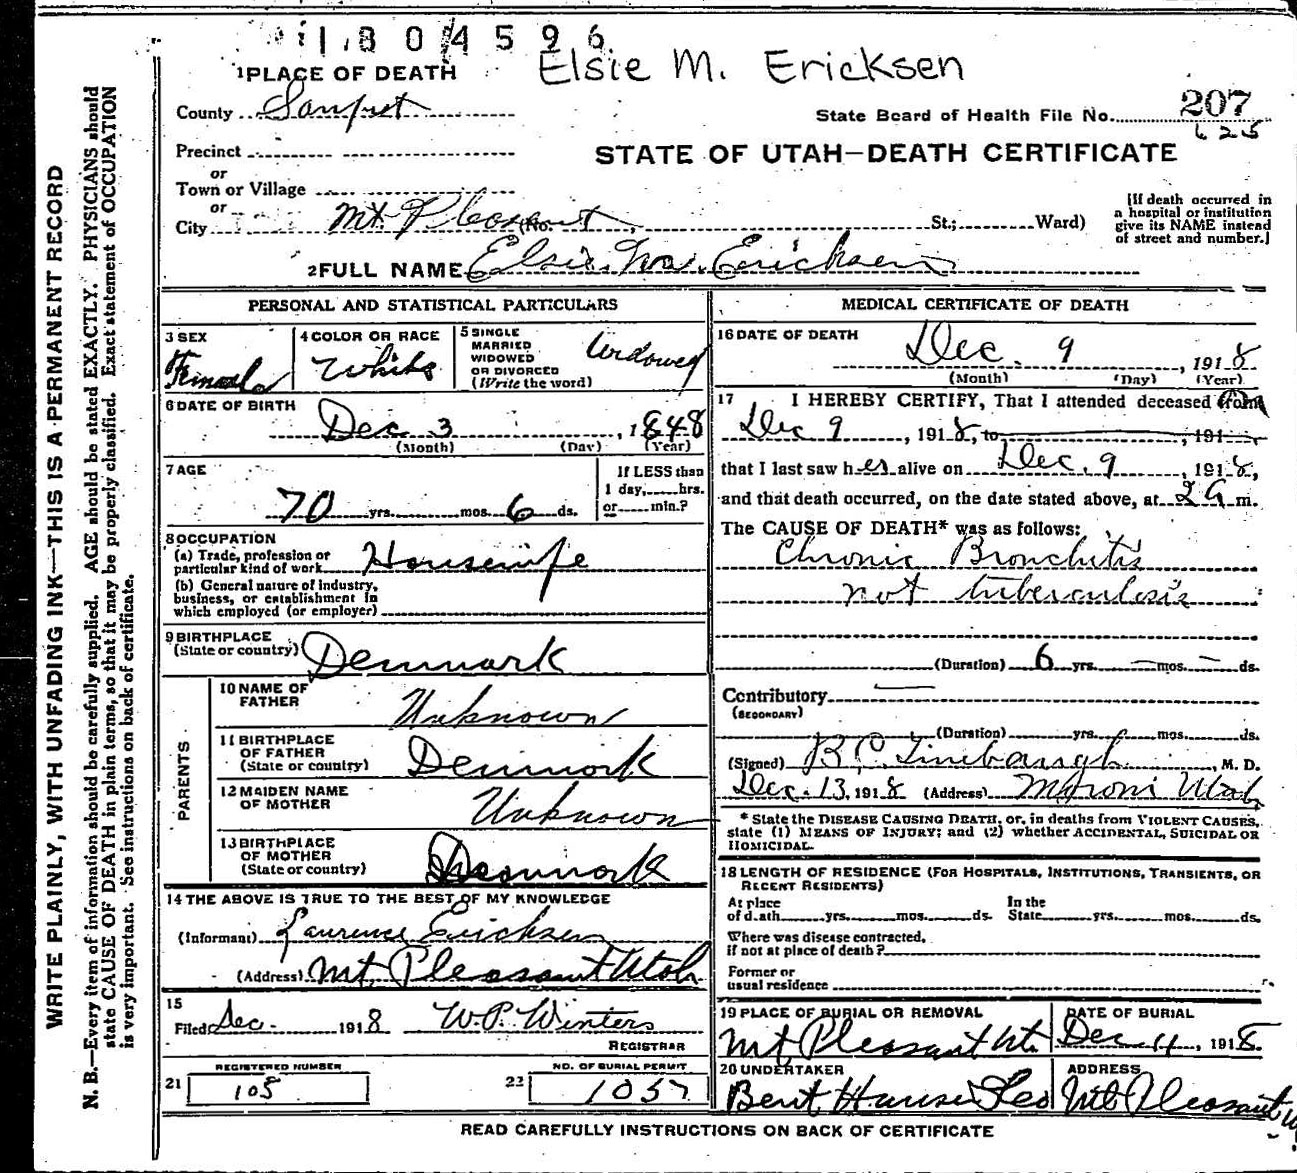 1804596
Elsie M. Ericksen
1 PLACE OF DEATH
County Sanpet
State Board of Health File No. 207
625
STATE OF UTAH—DEATH CERTIFICATE
Precinct
or
Town or Village
or
City Mt. Pleasant (No. St.; Ward)
[If death occurred in a hospital or institution give its NAME instead of street and number.]
2 FULL NAME Elsie Ericksen
PERSONAL AND STATISTICAL PARTICULARS
3 SEX Female
4 COLOR OR RACE White
5 SINGLE MARRIED WIDOWED OR DIVORCED (Write the word) Widowed
6 DATE OF BIRTH Dec 3, 1848
(Month) (Day) (Year)
7 AGE 70 yrs. mos. 6 ds.
If LESS than 1 day, hrs. or min.?
8 OCCUPATION
(a) Trade, profession or particular kind of work Housewife
(b) General nature of industry, business, or establishment in which employed (or employer)
9 BIRTHPLACE (State or country) Denmark
PARENTS
10 NAME OF FATHER Unknown
11 BIRTHPLACE OF FATHER (State or country) Denmark
12 MAIDEN NAME OF MOTHER Unknown
13 BIRTHPLACE OF MOTHER (State or country) Denmark
14 THE ABOVE IS TRUE TO THE BEST OF MY KNOWLEDGE
(Informant) Laurence Ericksen
(Address) Mt. Pleasant Utah
15
Filed Dec. 1918 W.P. Winters
REGISTRAR
21 REGISTERED NUMBER 108
22 NO. OF BURIAL PERMIT 1057
MEDICAL CERTIFICATE OF DEATH
16 DATE OF DEATH
Dec. 9, 1918
(Month) (Day) (Year)
17 I HEREBY CERTIFY, That I attended deceased from
Dec 9, 1918, to , 191
that I last saw her alive on Dec. 9, 1918,
and that death occurred, on the date stated above, at m.
The CAUSE OF DEATH* was as follows:
Chronic Bronchitis
not tuberculosis
(Duration) 6 yrs. — mos. — ds.
Contributory —
(SECONDARY)
(Duration) yrs. mos. ds.
(Signed) , M. D.
Dec. 13, 1918 (Address) Moroni Utah
* State the DISEASE CAUSING DEATH, or, in deaths from VIOLENT CAUSES, state (1) MEANS OF INJURY; and (2) whether ACCIDENTAL, SUICIDAL OR HOMICIDAL.
18 LENGTH OF RESIDENCE (FOR HOSPITALS, INSTITUTIONS, TRANSIENTS, OR RECENT RESIDENTS)
At place of death yrs. mos. ds. In the State yrs. mos. ds.
Where was disease contracted, if not at place of death?
Former or usual residence
19 PLACE OF BURIAL OR REMOVAL Mt Pleasant Ut.
DATE OF BURIAL Dec 11, 1918
20 UNDERTAKER Bent Hansen
ADDRESS Mt Pleasant
READ CAREFULLY INSTRUCTIONS ON BACK OF CERTIFICATE
WRITE PLAINLY, WITH UNFADING INK—THIS IS A PERMANENT RECORD
N. B.—Every item of information should be carefully supplied. AGE should be stated EXACTLY. PHYSICIANS should
state CAUSE OF DEATH in plain terms, so that it may be properly classified. Exact statement of OCCUPATION
is very important. See instructions on back of certificate.